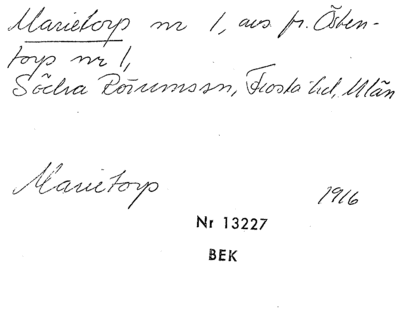 Marietorp nr 1, avs fr. Östen-
torp nr 1,
Södra Rörums sn, Frosta hd, Mlän
Marietorp 1916
Nr 13227
BEK